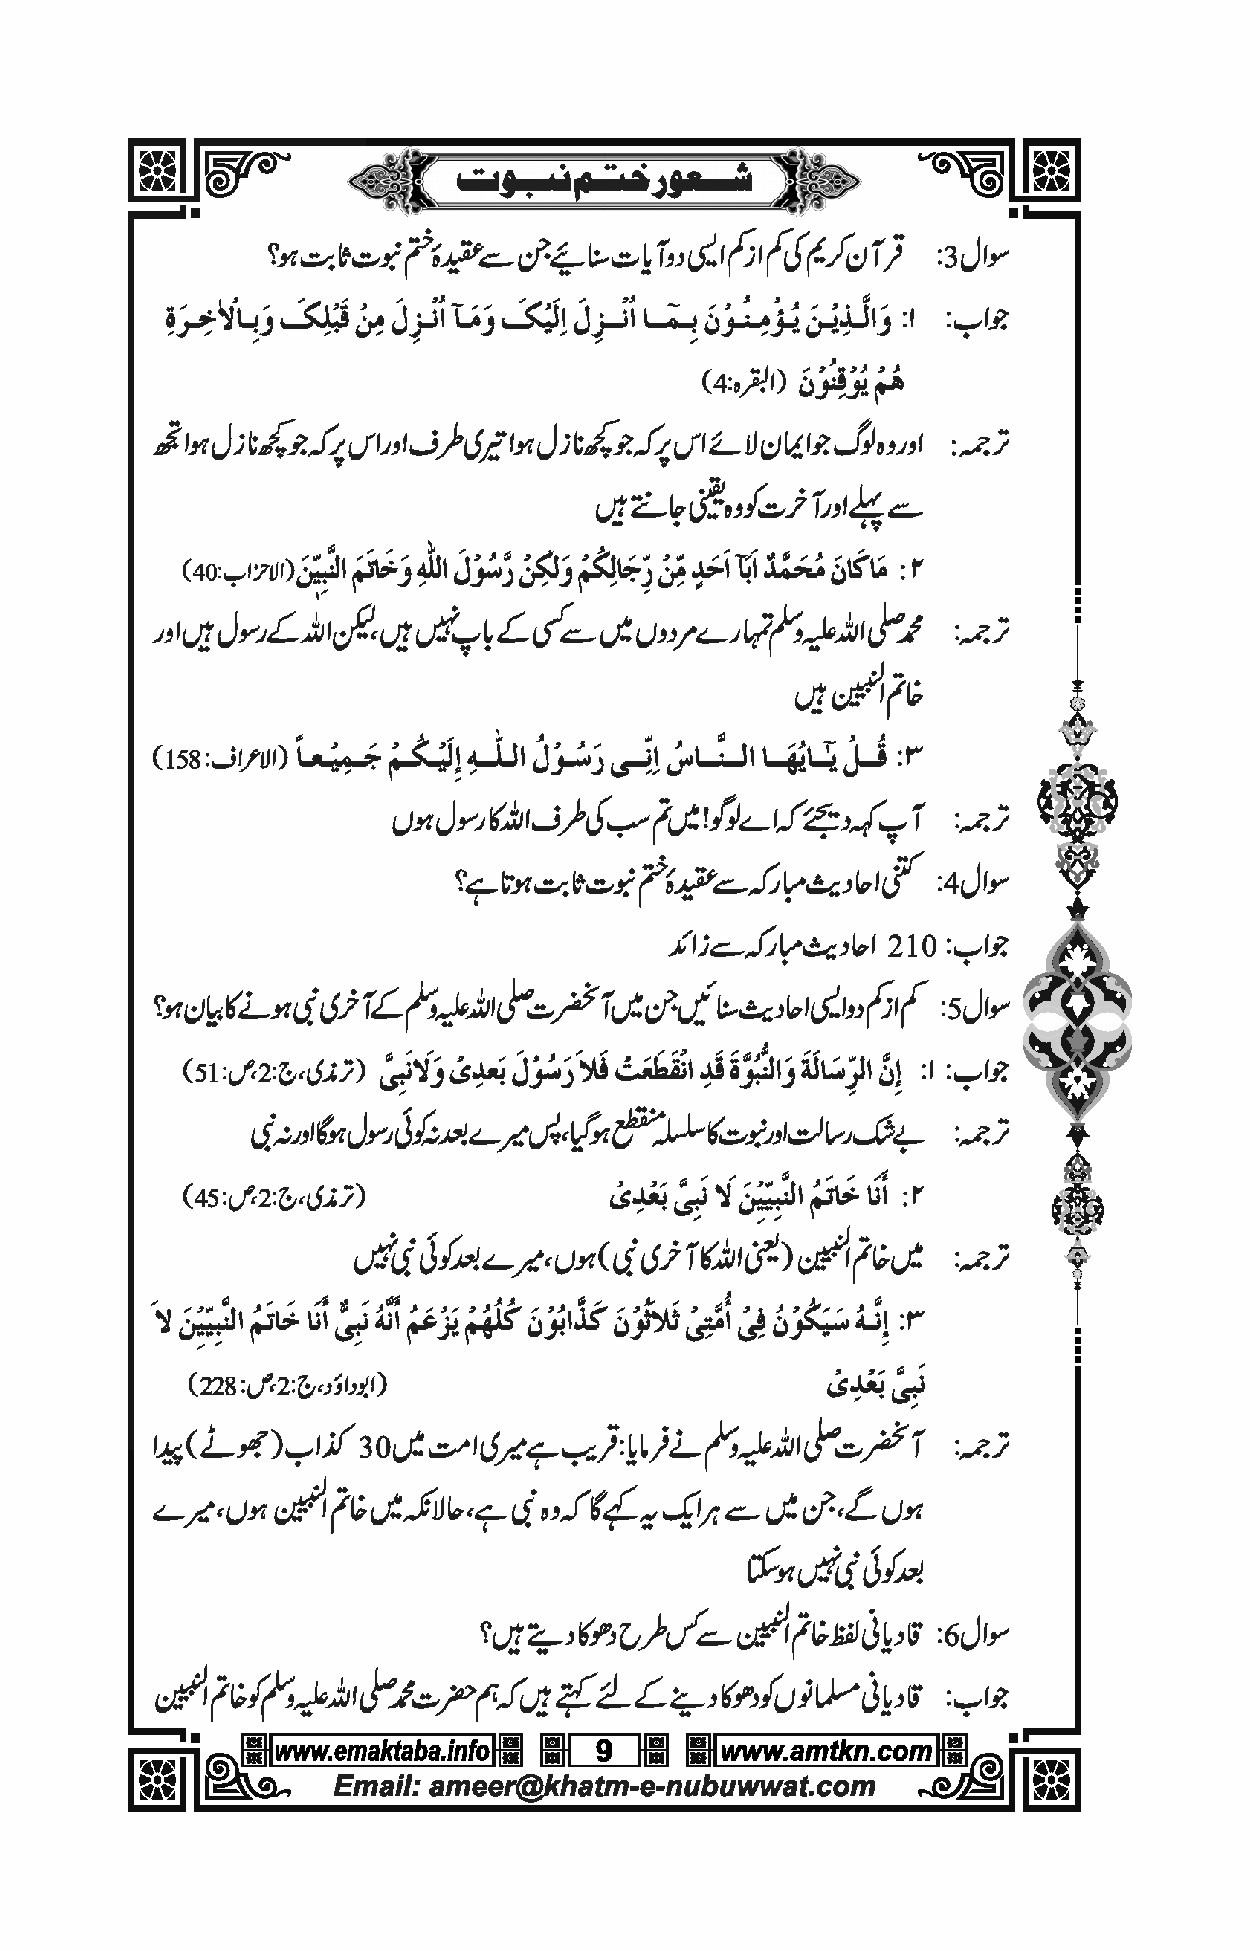 شعور ختم نبوت
سوال3: قرآن کریم کی کم از کم ایسی دو آیات سنائیے جن سے عقیدۂ ختم نبوت ثابت ہو؟
جواب: ۱: وَالَّـذِيْـنَ يُـؤْمِـنُـوْنَ بِـمَـآ اُنْـزِلَ اِلَيْكَ وَمَـآ اُنْـزِلَ مِنْ قَبْلِكَ وَبِـالْاٰخِـرَةِ
هُمْ يُوْقِنُوْنَ (البقرہ:4)
ترجمہ: اور وہ لوگ جو ایمان لائے اس پر کہ جو کچھ نازل ہوا تیری طرف اور اس پر کہ جو کچھ نازل ہوا تجھ
سے پہلے اور آخرت کو وہ یقینی جانتے ہیں
۲: مَاكَانَ مُحَمَّدٌ اَبَآ اَحَدٍ مِّنْ رِّجَالِكُمْ وَلٰكِنْ رَّسُوْلَ اللّٰهِ وَخَاتَمَ النَّبِيّٖنَ (الاحزاب:40)
ترجمہ: محمد صلی اللہ علیہ وسلم تمہارے مردوں میں سے کسی کے باپ نہیں ہیں، لیکن اللہ کے رسول ہیں اور
خاتم النبیین ہیں
۳: قُـلْ يٰـٓاَيُّهَـا الـنَّـاسُ اِنِّـى رَسُـوْلُ الـلّٰـهِ اِلَيْـكُـمْ جَـمِـيْـعـاً (الاعراف:158)
ترجمہ: آپ کہہ دیجئے کہ اے لوگو! میں تم سب کی طرف اللہ کا رسول ہوں
سوال4: کتنی احادیث مبارکہ سے عقیدۂ ختم نبوت ثابت ہوتا ہے؟
جواب: 210 احادیث مبارکہ سے زائد
سوال5: کم از کم دو ایسی احادیث سنائیں جن میں آنحضرت صلی اللہ علیہ وسلم کے آخری نبی ہونے کا بیان ہو؟
جواب: ۱: اِنَّ الرِّسَالَةَ وَالنُّبُوَّةَ قَدِ انْقَطَعَتْ فَلاَ رَسُوْلَ بَعدِىْ وَلَا نَبِىَّ (ترمذی، ج:2،ص:51)
ترجمہ: بے شک رسالت اور نبوت کا سلسلہ منقطع ہوگیا، پس میرے بعد نہ کوئی رسول ہوگا اور نہ نبی
۲: أَنَا خَاتَمُ النَّبِيِّيْنَ لاَ نَبِىَّ بَعْدِىْ (ترمذی، ج:2،ص:45)
ترجمہ: میں خاتم النبیین (یعنی اللہ کا آخری نبی) ہوں، میرے بعد کوئی نبی نہیں
۳: اِنَّـهُ سَيَكُوْنُ فِىْ أُمَّتِىْ ثَلاَثُوْنَ كَذَّابُوْنَ كُلُّهُمْ يَزْعُمُ أَنَّهُ نَبِىٌّ أَنَا خَاتَمُ النَّبِيِّيْنَ لاَ
نَبِىَّ بَعْدِىْ (ابوداؤد، ج:2،ص:228)
ترجمہ: آنحضرت صلی اللہ علیہ وسلم نے فرمایا: قریب ہے میری امت میں 30 کذاب (جھوٹے) پیدا
ہوں گے، جن میں سے ہر ایک یہ کہے گا کہ وہ نبی ہے، حالانکہ میں خاتم النبیین ہوں، میرے
بعد کوئی نبی نہیں ہوسکتا
سوال6: قادیانی لفظ خاتم النبیین سے کس طرح دھوکا دیتے ہیں؟
جواب: قادیانی مسلمانوں کو دھوکا دینے کے لئے کہتے ہیں کہ ہم حضرت محمد صلی اللہ علیہ وسلم کو خاتم النبیین
www.emaktaba.info 9 www.amtkn.com
Email: ameer@khatm-e-nubuwwat.com